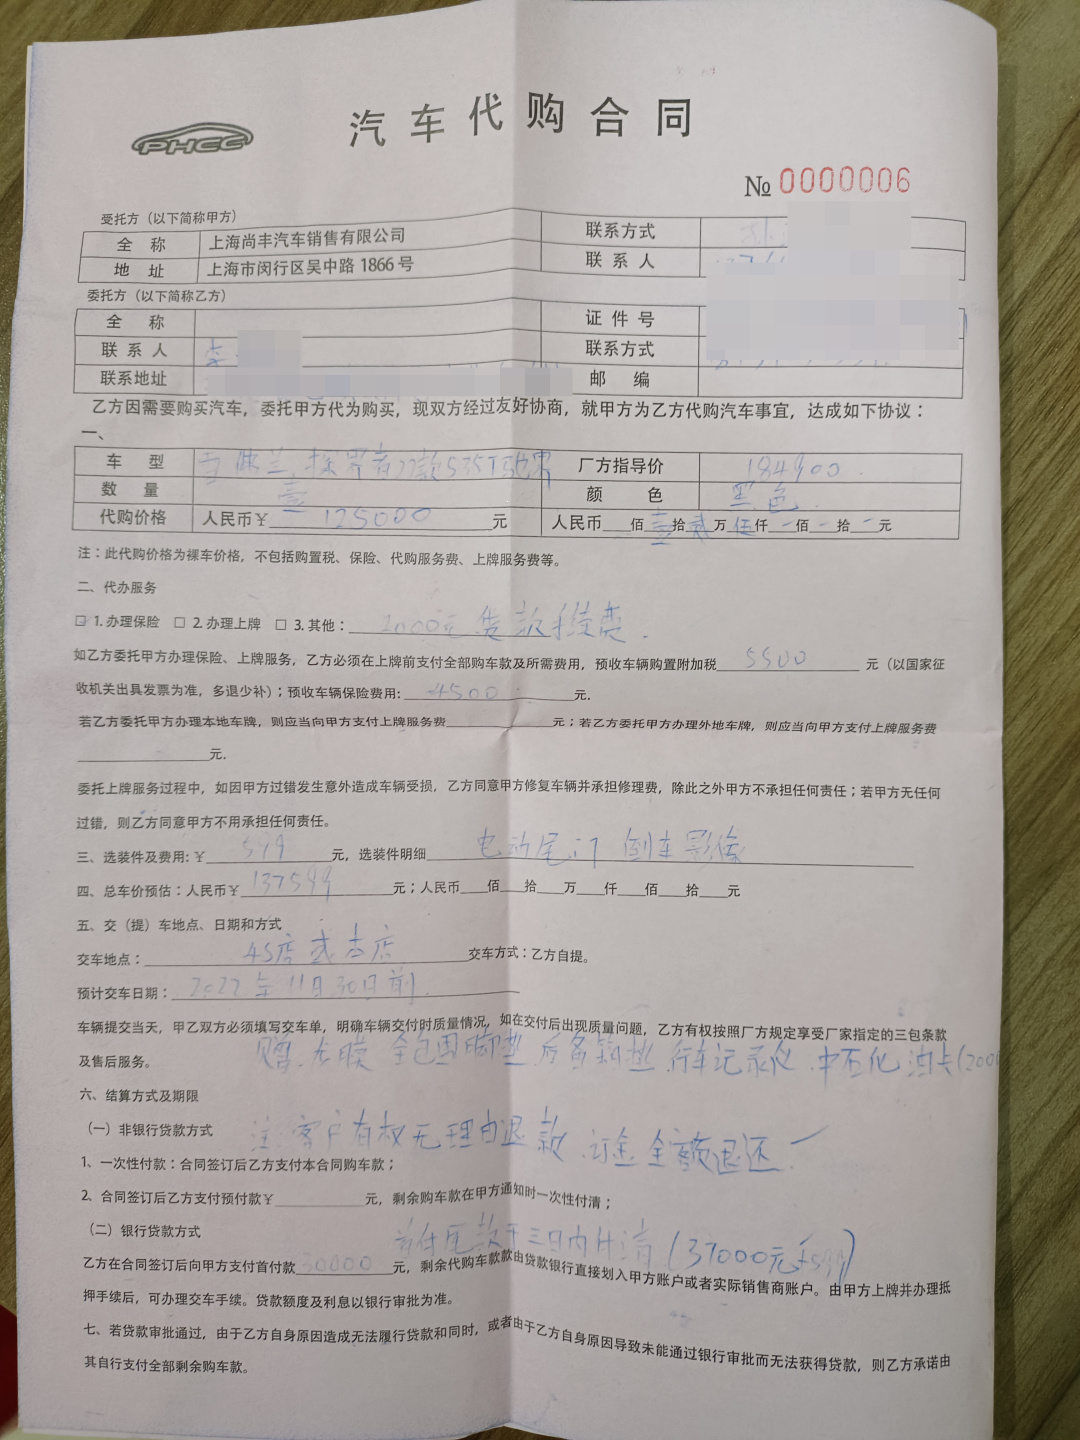 PHCC
汽车代购合同
№ 0000006
受托方（以下简称甲方）
全 称 上海尚丰汽车销售有限公司 联系方式
地 址 上海市闵行区吴中路 1866 号 联 系 人
委托方（以下简称乙方）
全 称 证 件 号
联 系 人 李 联系方式
联系地址 邮 编
乙方因需要购买汽车，委托甲方代为购买，现双方经过友好协商，就甲方为乙方代购汽车事宜，达成如下协议：
一、
车 型 雪佛兰.探界者22款535T驰界 厂方指导价 184900
数 量 壹 颜 色 黑色
代购价格 人民币￥125000元 人民币__佰壹拾贰万伍仟-佰-拾-元
注：此代购价格为裸车价格，不包括购置税、保险、代购服务费、上牌服务费等。
二、代办服务
□ 1. 办理保险 □ 2. 办理上牌 □ 3. 其他：2000元 贷款手续费.
如乙方委托甲方办理保险、上牌服务，乙方必须在上牌前支付全部购车款及所需费用，预收车辆购置附加税5500元（以国家征
收机关出具发票为准，多退少补）；预收车辆保险费用：4500元.
若乙方委托甲方办理本地车牌，则应当向甲方支付上牌服务费____元；若乙方委托甲方办理外地车牌，则应当向甲方支付上牌服务费
____元.
委托上牌服务过程中，如因甲方过错发生意外造成车辆受损，乙方同意甲方修复车辆并承担修理费，除此之外甲方不承担任何责任；若甲方无任何
过错，则乙方同意甲方不用承担任何责任。
三、选装件及费用：￥599元，选装件明细 电动尾门 倒车影像
四、总车价预估：人民币￥137599元；人民币__佰__拾__万__仟__佰__拾__元
五、交（提）车地点、日期和方式
交车地点：4S店或本店 交车方式：乙方自提。
预计交车日期：2022年11月30日前.
车辆提交当天，甲乙双方必须填写交车单，明确车辆交付时质量情况，如在交付后出现质量问题，乙方有权按照厂方规定享受厂家指定的三包条款
及售后服务。 赠.龙膜 全包围脚垫.后备箱垫.行车记录仪.中石化油卡(2000
六、结算方式及期限
（一）非银行贷款方式 注:客户有权无理由退款.订金全额退还
1、一次性付款：合同签订后乙方支付本合同购车款；
2、合同签订后乙方支付预付款￥____元，剩余购车款在甲方通知时一次性付清；
（二）银行贷款方式 首付尾款于三日内付清 (37000元+599)
乙方在合同签订后向甲方支付首付款30000元，剩余代购车款款由贷款银行直接划入甲方账户或者实际销售商账户。由甲方上牌并办理抵
押手续后，可办理交车手续。贷款额度及利息以银行审批为准。
七、若贷款审批通过，由于乙方自身原因造成无法履行贷款和同时，或者由于乙方自身原因导致未能通过银行审批而无法获得贷款，则乙方承诺由
其自行支付全部剩余购车款。